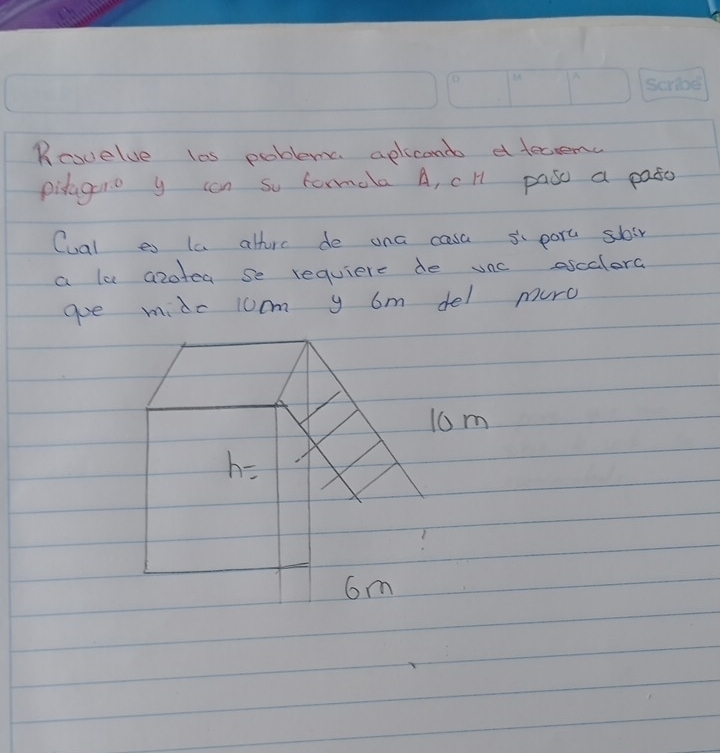 D M A Scribe
Resuelve los problema aplicando el teorema
pitagorio y con su formula A, c H paso a paso
Cual es la altura de una casa si para subir
a la azotea se requiere de una escalera
que mide 10m y 6m del muro
10 m
h=
6m